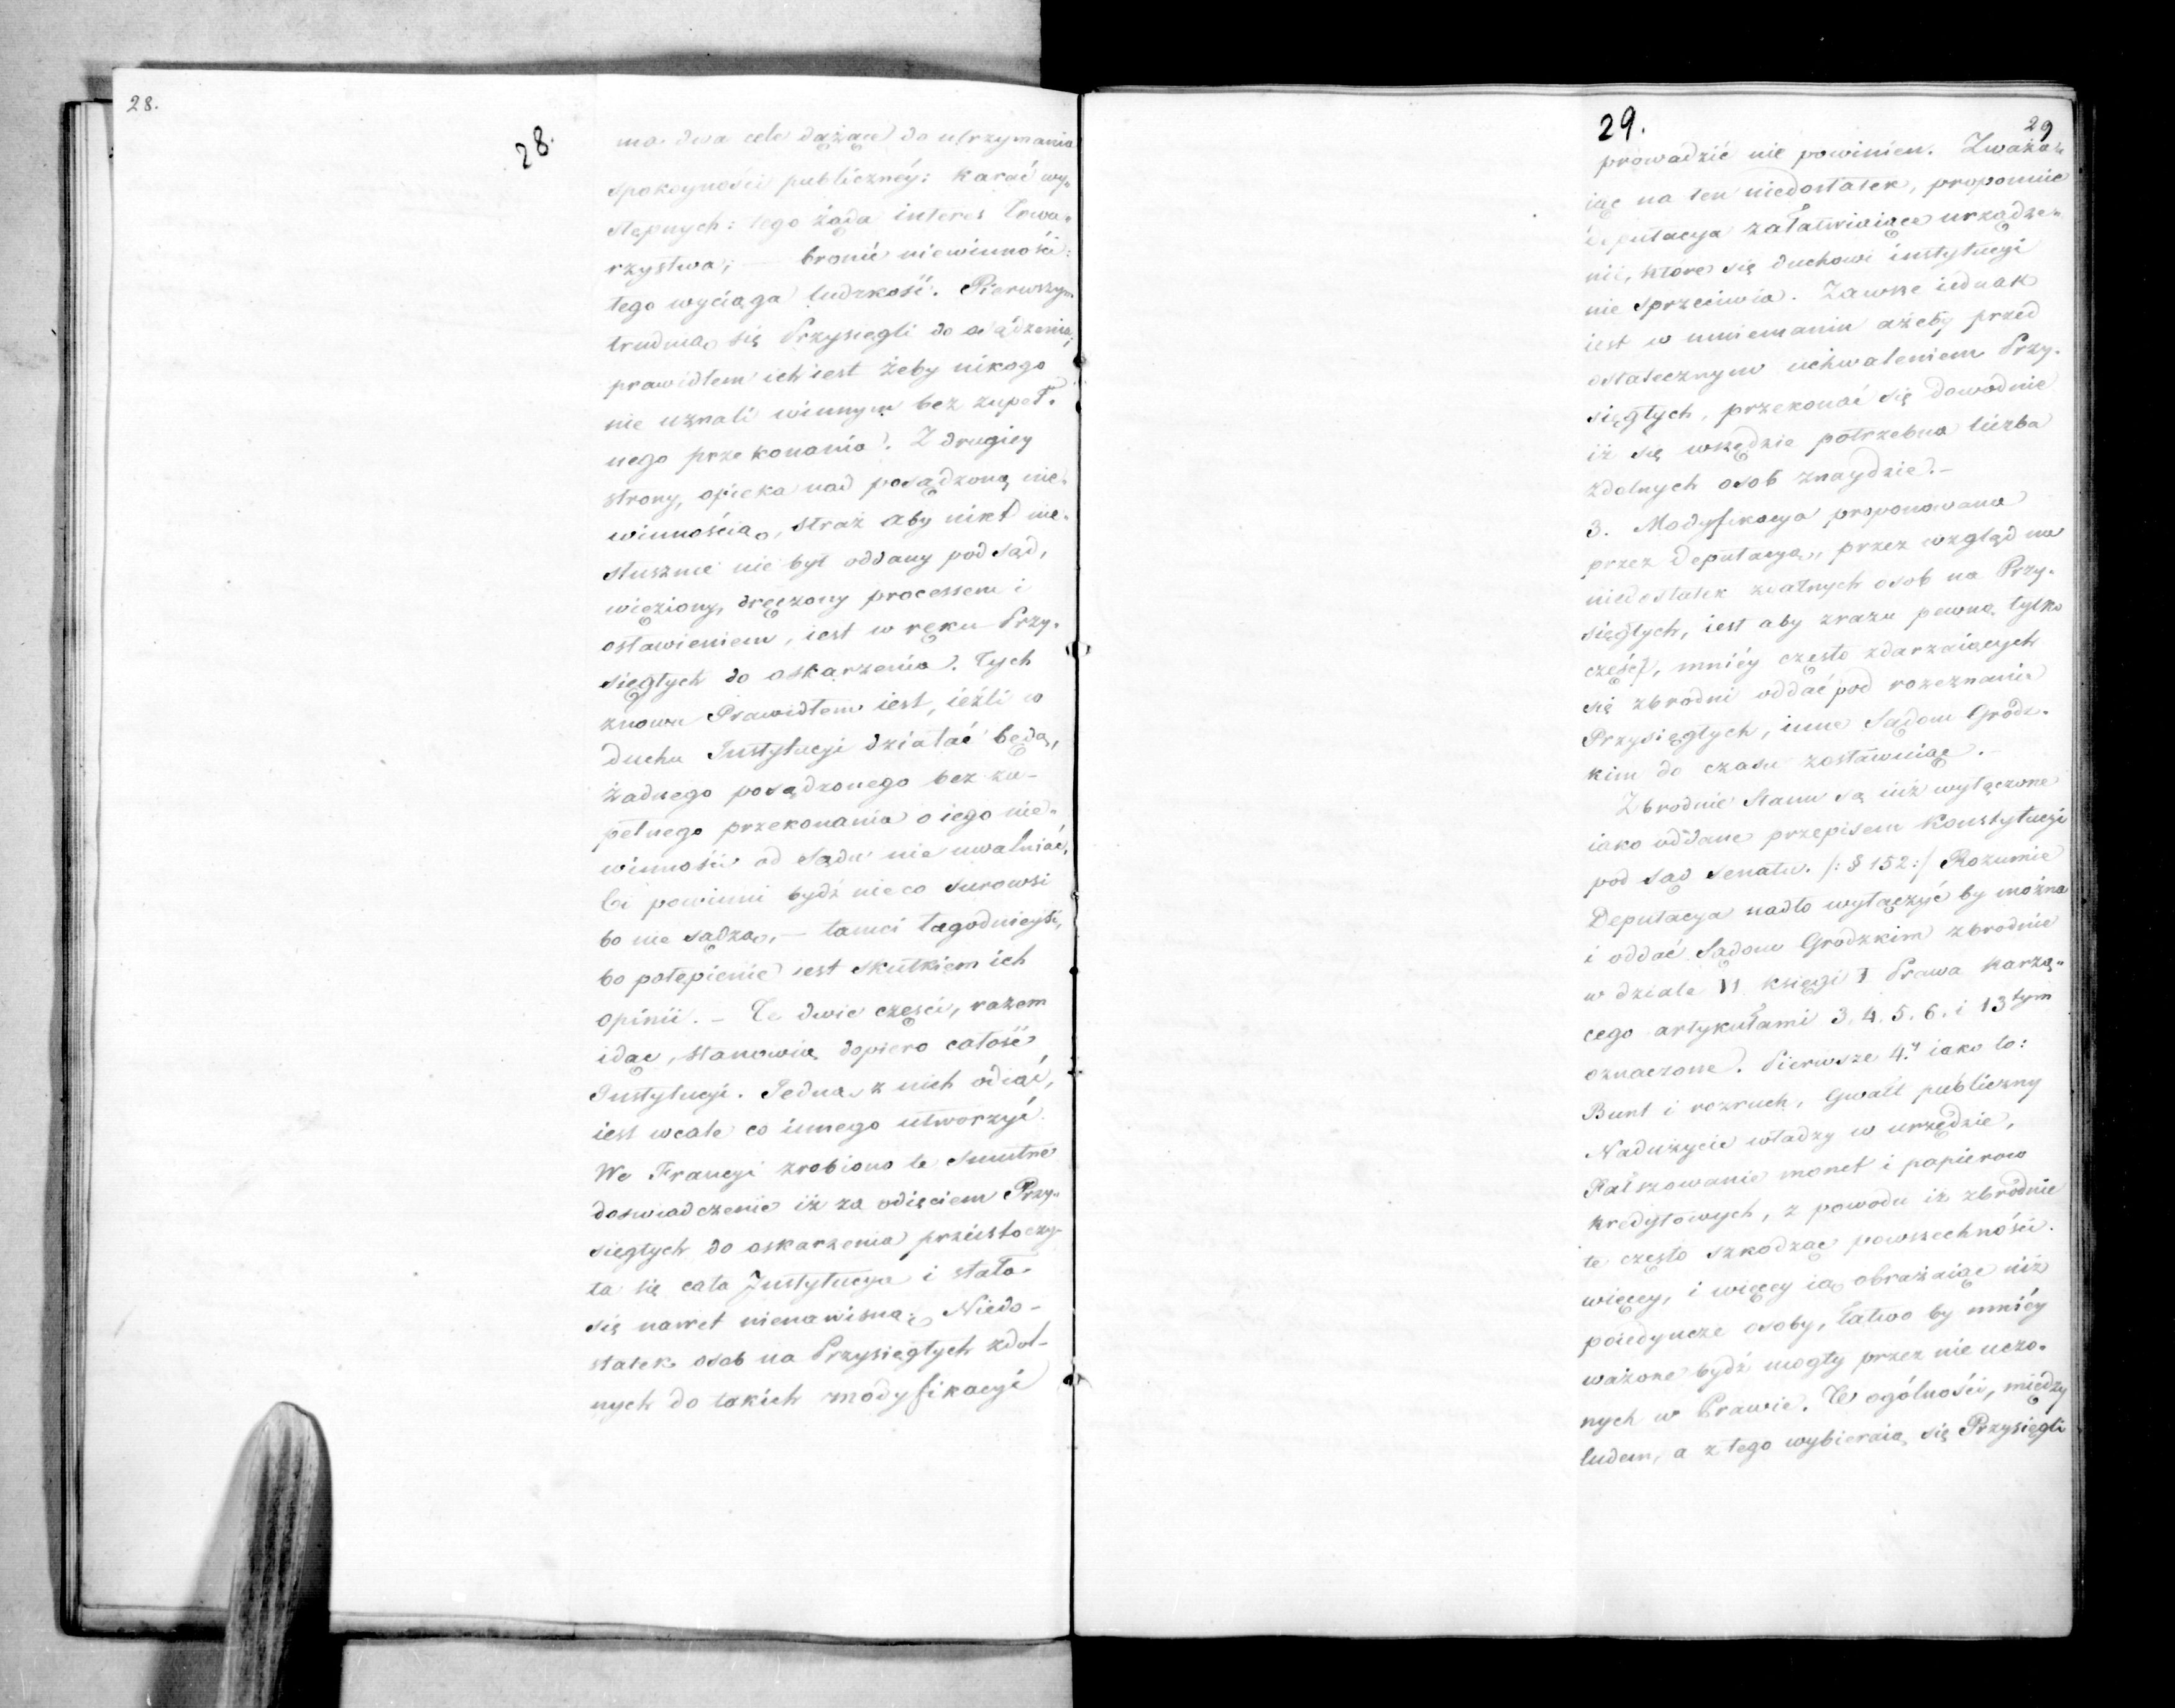 28.
28.
ma dwa cele dążące do utrzymania
spokoyności publiczney: karać wy„
stępnych: tego żąda interes Towa„
rzystwa; — bronić niewinności:
tego wyciąga ludzkość. Pierwszym
trudnią się Przysięgli do osądzenia;
prawidłem ich iest żeby nikogo
nie uznali winnym bez zupeł„
nego przekonania. Z drugiey
strony, opieka nad posądzoną nie„
winnością, straż aby nikt nie„
słusznie nie był oddany pod sąd,
więziony, dręczony processem i
osławieniem, iest w ręku Przy„
sięgłych do oskarżenia. Tych
znowu Prawidłem iest, ieźli w
duchu Instytucyi działać będą,
żadnego posądzonego bez zu-
pełnego przekonania o iego nie„
winności od sądu nie uwalniać.
Ci powinni bydź nieco surowsi
bo nie sądzą, — tamci łagodnieysi,
bo potępienie iest skutkiem ich
opinii. — Te dwie części, razem
idąc, stanowią dopiero całość
Instytucyi. Jedną z nich odiąć,
iest wcale co innego utworzyć.
We Francyi zrobiono te smutne
doswiadczenie iż za odięciem Przy„
sięgłych do oskarżenia przeistoczy-
ła się cała Instytucya i stała
się nawet nienawisną. Niedo-
statek osob na Przysięgłych zdol-
nych do takich modyfikacyi
29.
29
prowadzić nie powinien. Zważa„
iąc na ten niedostatek, proponuie
Deputacya załatwiaiące urządze„
nie, ktore się duchowi instytucyi
nie sprzeciwia. Zawsze iednak
iest w mniemaniu ażeby przed
ostatecznym uchwaleniem Przy„
sięgłych, przekonać się dowodnie
iż się wszędzie potrzebna liczba
zdolnych osob znaydzie. —
3. Modyfikacya proponowana
przez Deputacyą, przez wzgląd na
niedostatek zdatnych osob na Przy„
sięgłych, iest aby zrazu pewną tylko
część, mniéy często zdarzaiących
się zbrodni oddać pod rozeznanie
Przysięgłych, inne Sądom Grodz„
kim do czasu zostawuiąc. —
Zbrodnie Stanu są iuż wyłączone
iako oddane przepisem Konstytucyi
pod sąd Senatu. /: § 152 :/ Rozumie
Deputacya nadto wyłączyć by można
i oddać Sądom Grodzkim zbrodnie
w dziale II księgi I Prawa karzą„
cego artykułami 3. 4. 5. 6. i 13tym
oznaczone. Pierwsze 4.y iako to:
Bunt i rozruch, Gwałt publiczny
Nadużycie władzy w urzędzie,
Fałszowanie monet i papierow
kredytowych, z powodu iż zbrodnie
te często szkodząc powszechności
więcey, i więcey ią obrażaiąc niż
poiedyncze osoby, łatwo by mniéy
ważone bydź mogły przez nie uczo„
nych w Prawie. W ogólności, między
ludem, a z tego wybieraią się Przysięgli